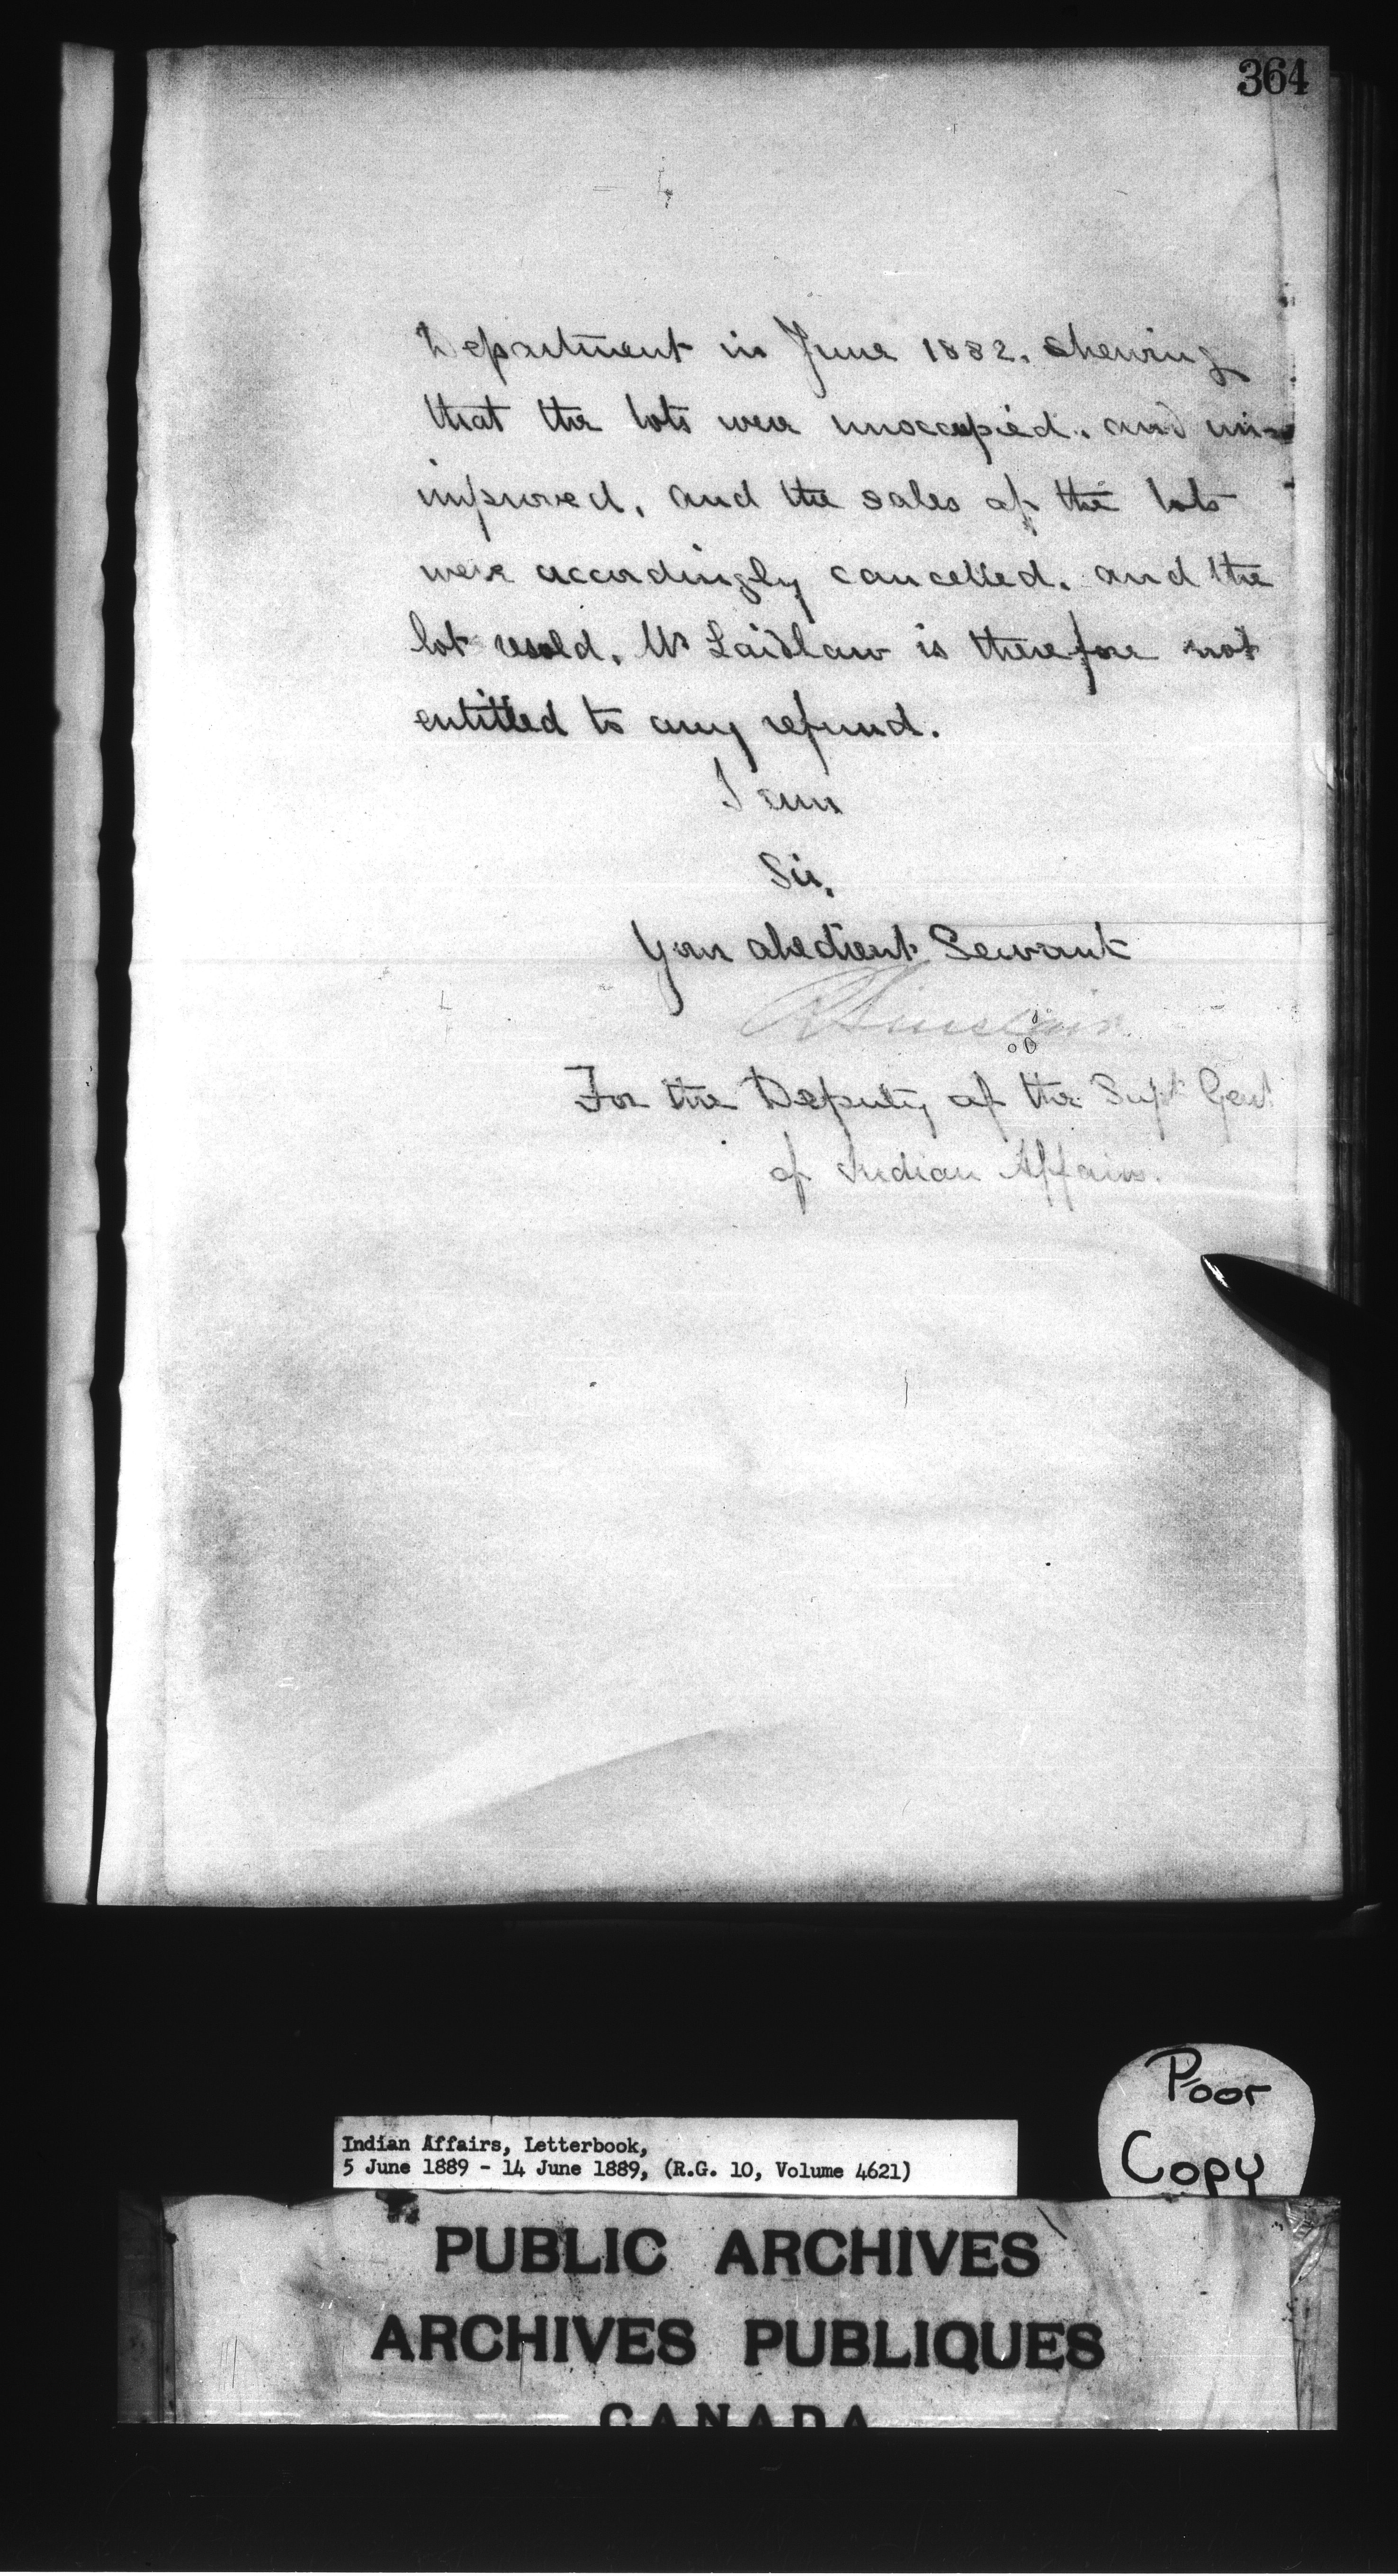 364
Department in June 1882. shewing
that the lots were unoccupied, and un-
improved, and the sales of the lots
were accordingly cancelled, and the
lot resold, Mr Laidlaw is therefore not
entitled to any refund.
I am
Sir,
Your obedient Servant
R Sinclair
For the Deputy of the Supt Genl
of Indian Affairs.
Poor
Copy
Indian Affairs, Letterbook,
5 June 1889 - 14 June 1889, (R.G. 10, Volume 4621)
PUBLIC ARCHIVES
ARCHIVES PUBLIQUES
CANADA